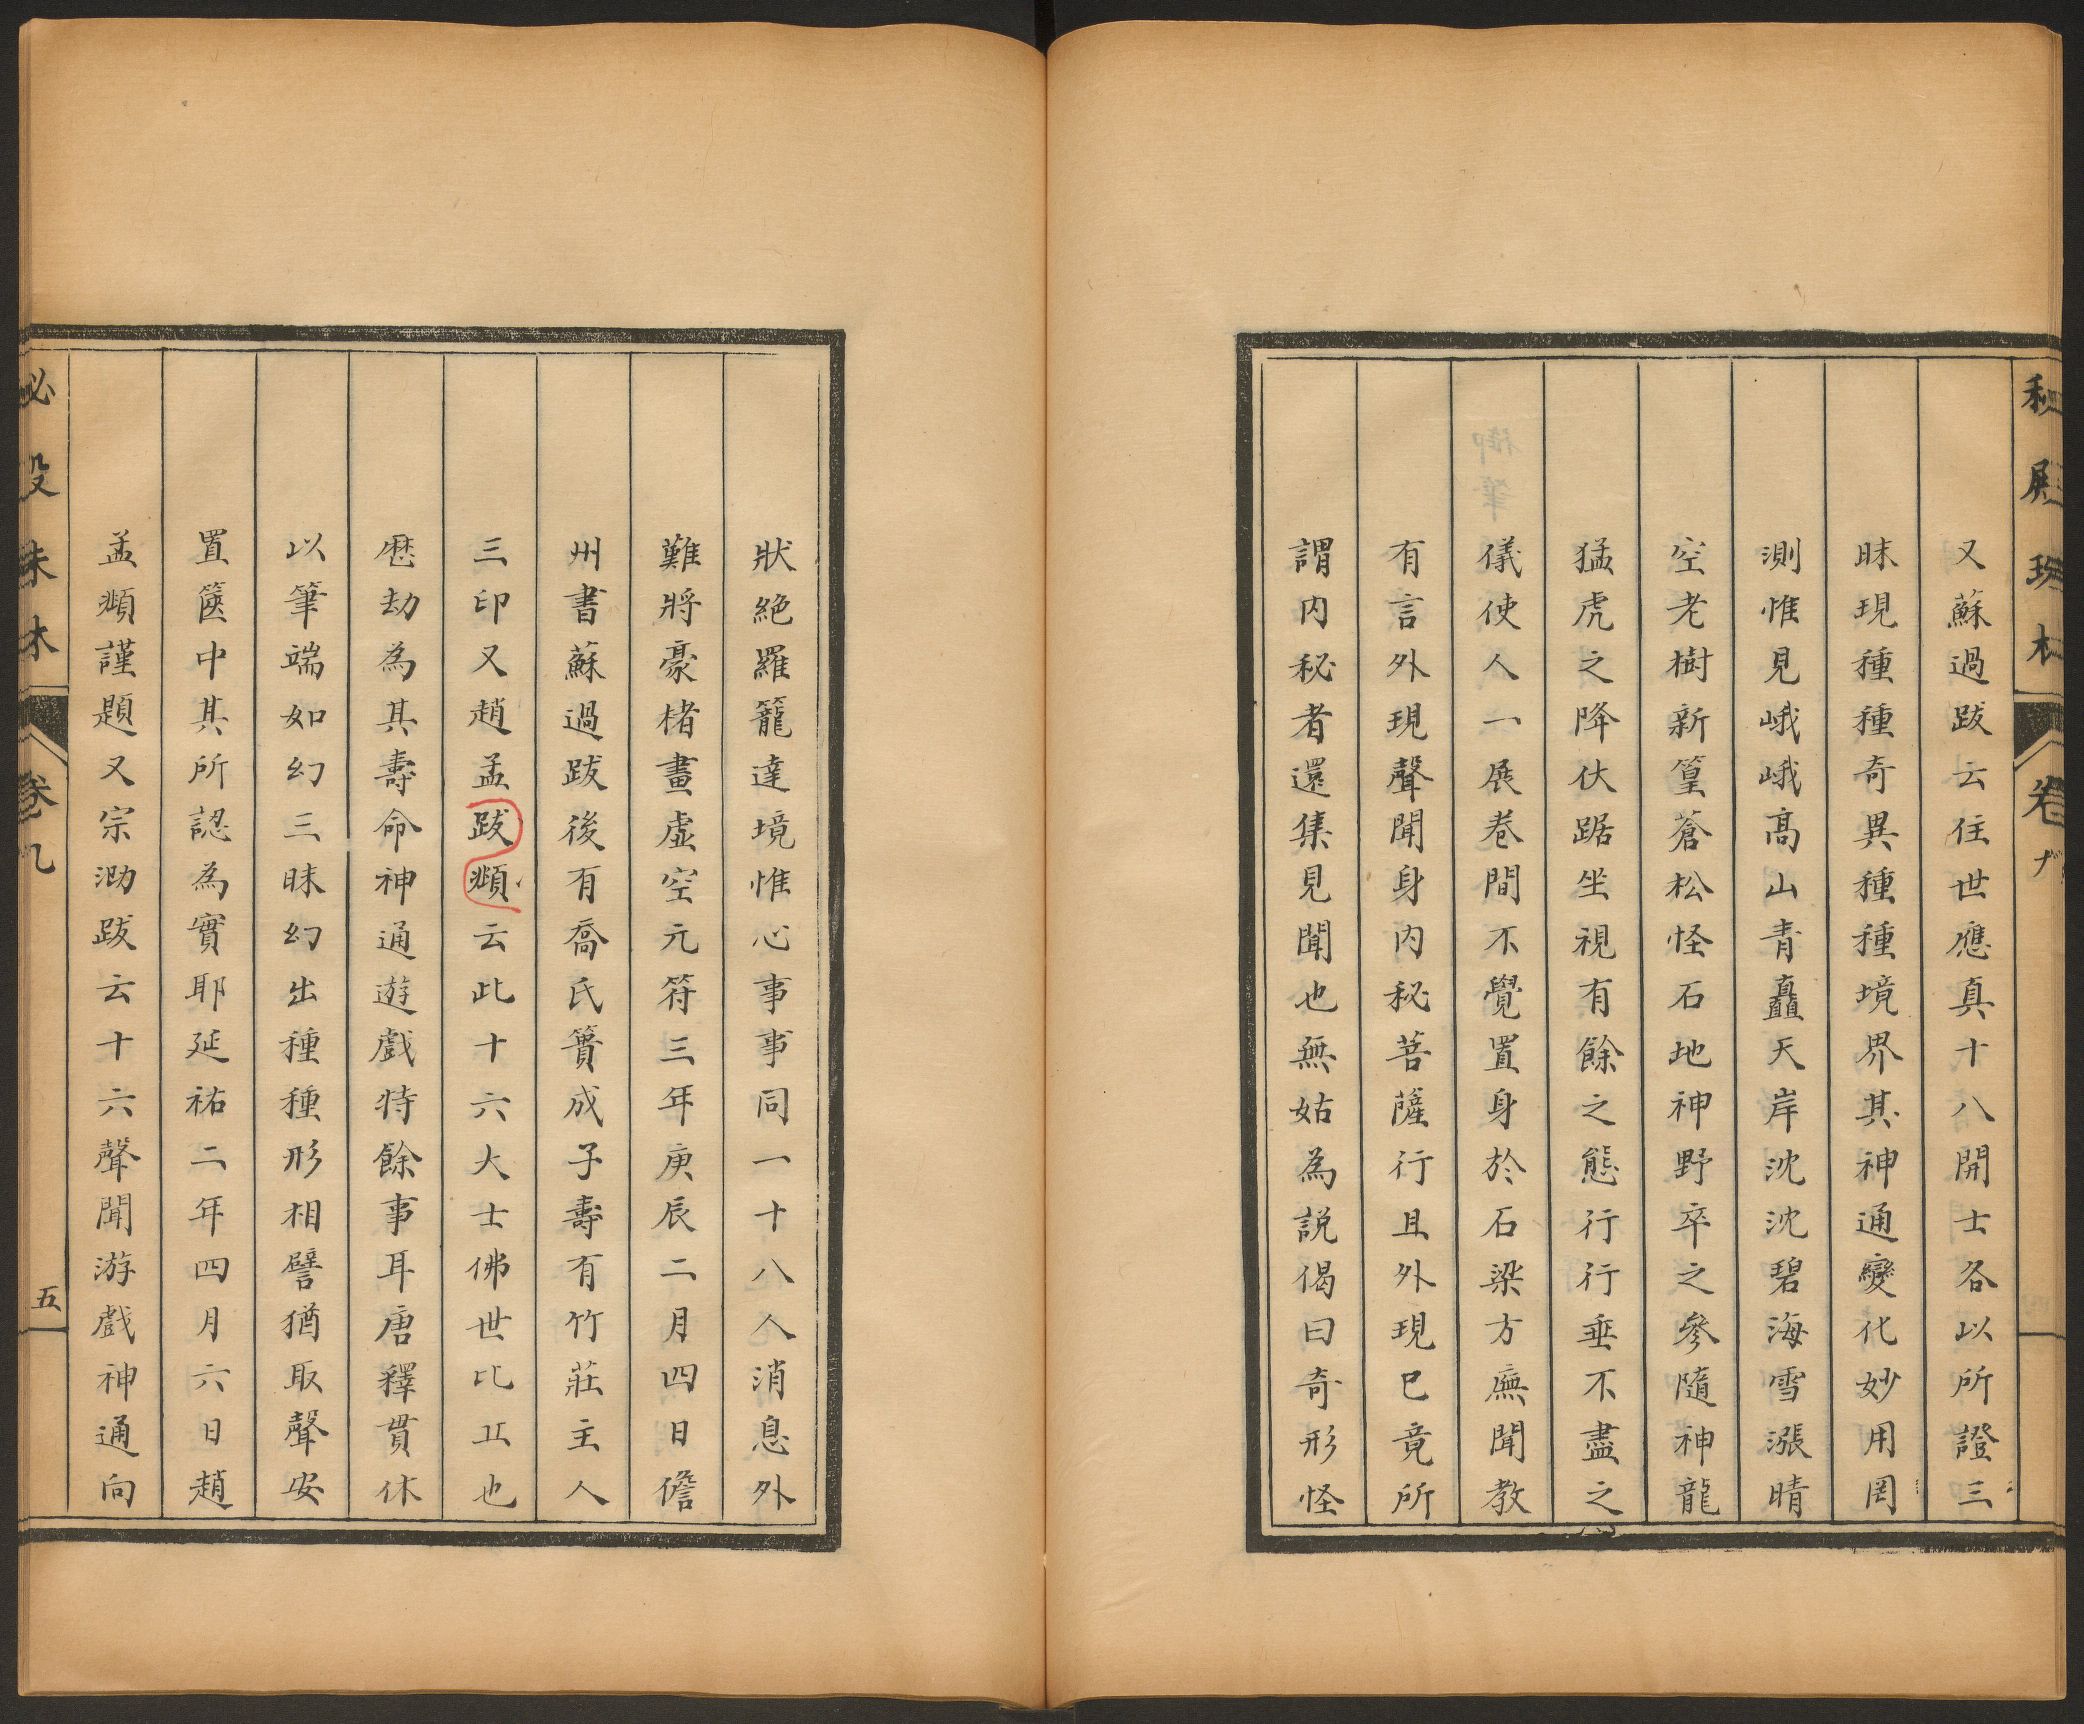 又蘇過跋云住世應真十八開士各以所證三
昧現種種奇異種種境界其神通變化妙用罔
測惟見峨峨高山青矗天岸沈沈碧海雪漲晴
空老樹新篁蒼松怪石地神野卒之參隨神龍
猛虎之降伏踞坐視有餘之態行行垂不盡之
儀使人一展卷間不覺置身於石梁方廡聞教
有言外現聲聞身内秘菩薩行且外現已竟所
謂内秘者還集見聞也無姑為説偈曰奇形怪
狀絶羅籠達境惟心事事同一十八人消息外
難將豪楮畫虚空元符三年庚辰二月四日儋
州書蘇過跋後有喬氏簣成子壽有竹莊主人
三印又趙孟跋頫云此十六大士佛世比丘也
歷劫為其壽命神通遊戲特餘事耳唐釋貫休
以筆端如幻三昧幻出種種形相譬猶取聲安
置篋中其所認為實耶延祐二年四月六日趙
孟頫謹題又宗泐跋云十六聲聞游戲神通向
卷九
五